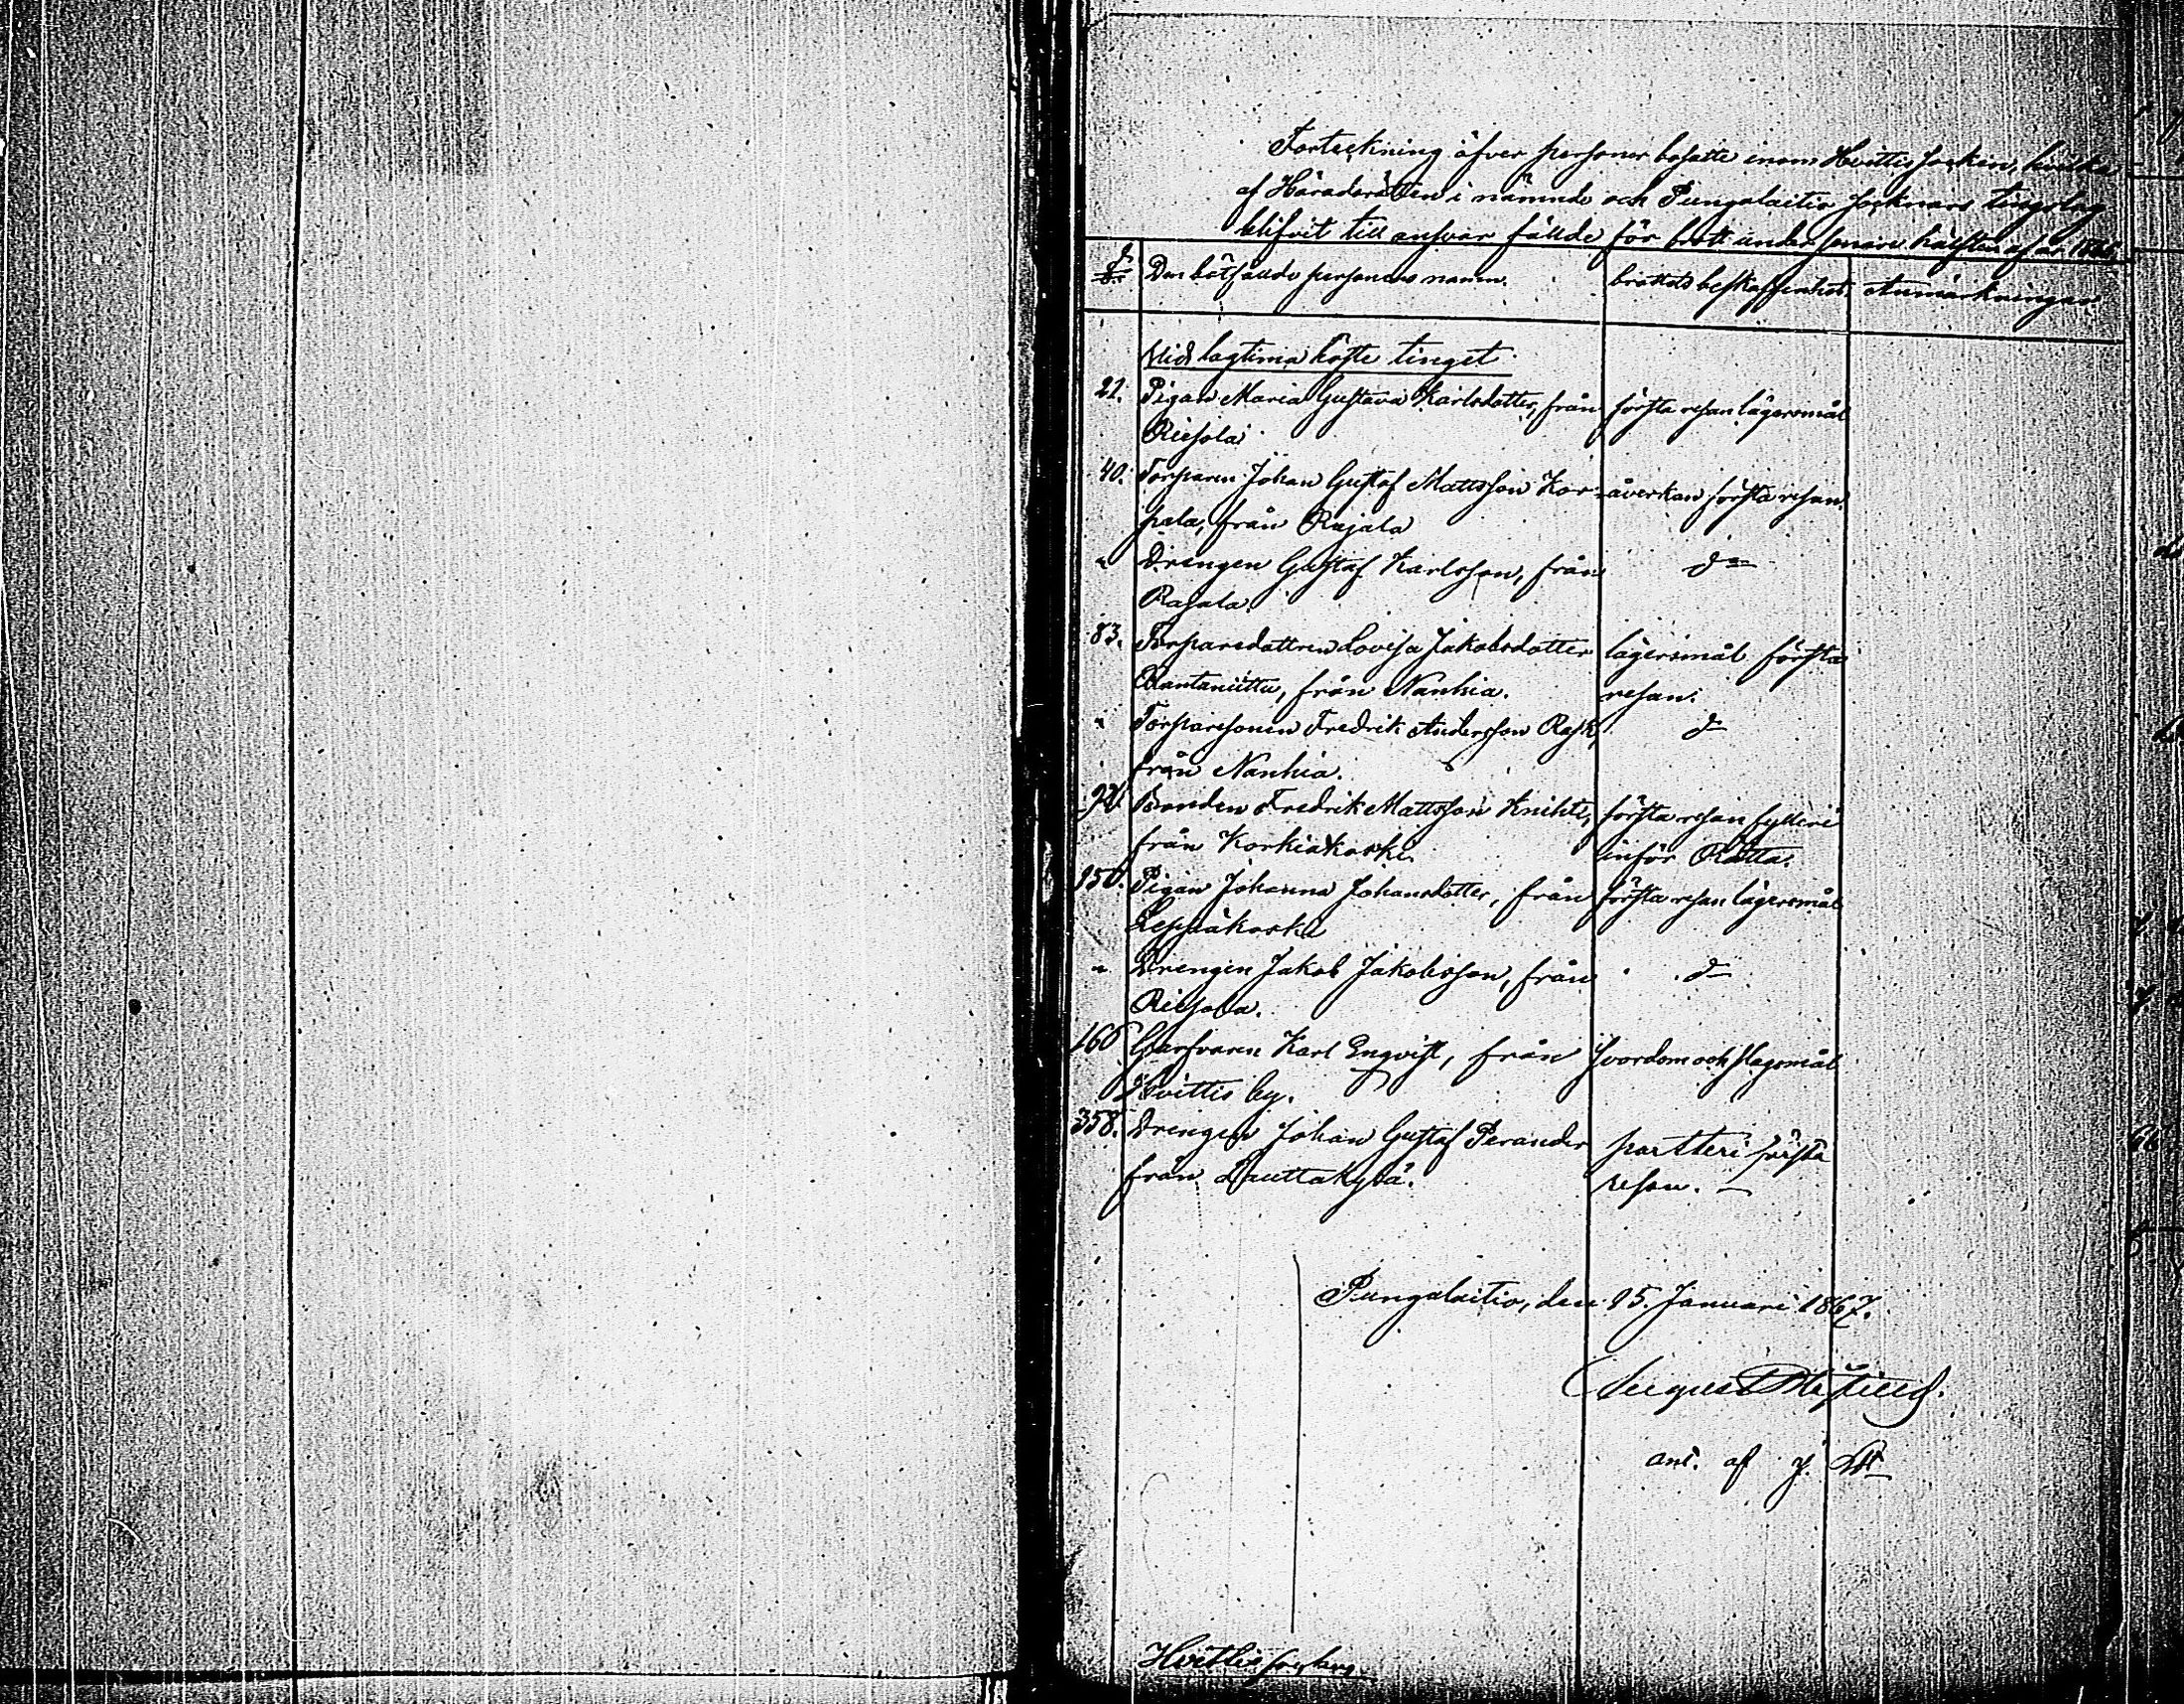 Förteckning öfver personer bosatte inom Hvittis socken, hvilka
af Häradsrätten i nämnde och Pungalaitio socknars tingslag
blifvit till ansvar fällde för brott under senare hälften af år 1866.
§ Den bötfällde personens namn. brottets beskaffenhet. Anmärkningar
Vid lagtima höste tinget
21. Pigan Maria Gustava Karlsdotter, från första resan lägersmål
Riesola
40. Torparen Johan Gustaf Mattsson Kor- åverkan första resan.
pala, från Rajala
" Drengen Gustaf Karlsson, från d:o
Rajala.
83. Torparedottren Lovisa Jakobsdotter lägersmål första
Rantaniittu, från Nanhia. resan.
" Torparesonen Fredrik Andersson Rask, d:o
från Nanhia.
92. Bonden Fredrik Mattsson Knihti, första resan fylleri
från Korkiakoski. inför Rätta.
150. Pigan Johanna Johansdotter, från första resan lägersmål
Leppäkoski
" Drengen Jakob Jakobsson, från d:o
Riesola.
160 Garfvaren Karl Engvist, från svordom och slagsmål
Hvittis by.
358. Drengen Johan Gustaf Perander partteri första
från Lauttakylä. resan. —
Pungalaitio, den 15. Januari 1867.
August
ant. af J.
Hvittis socken